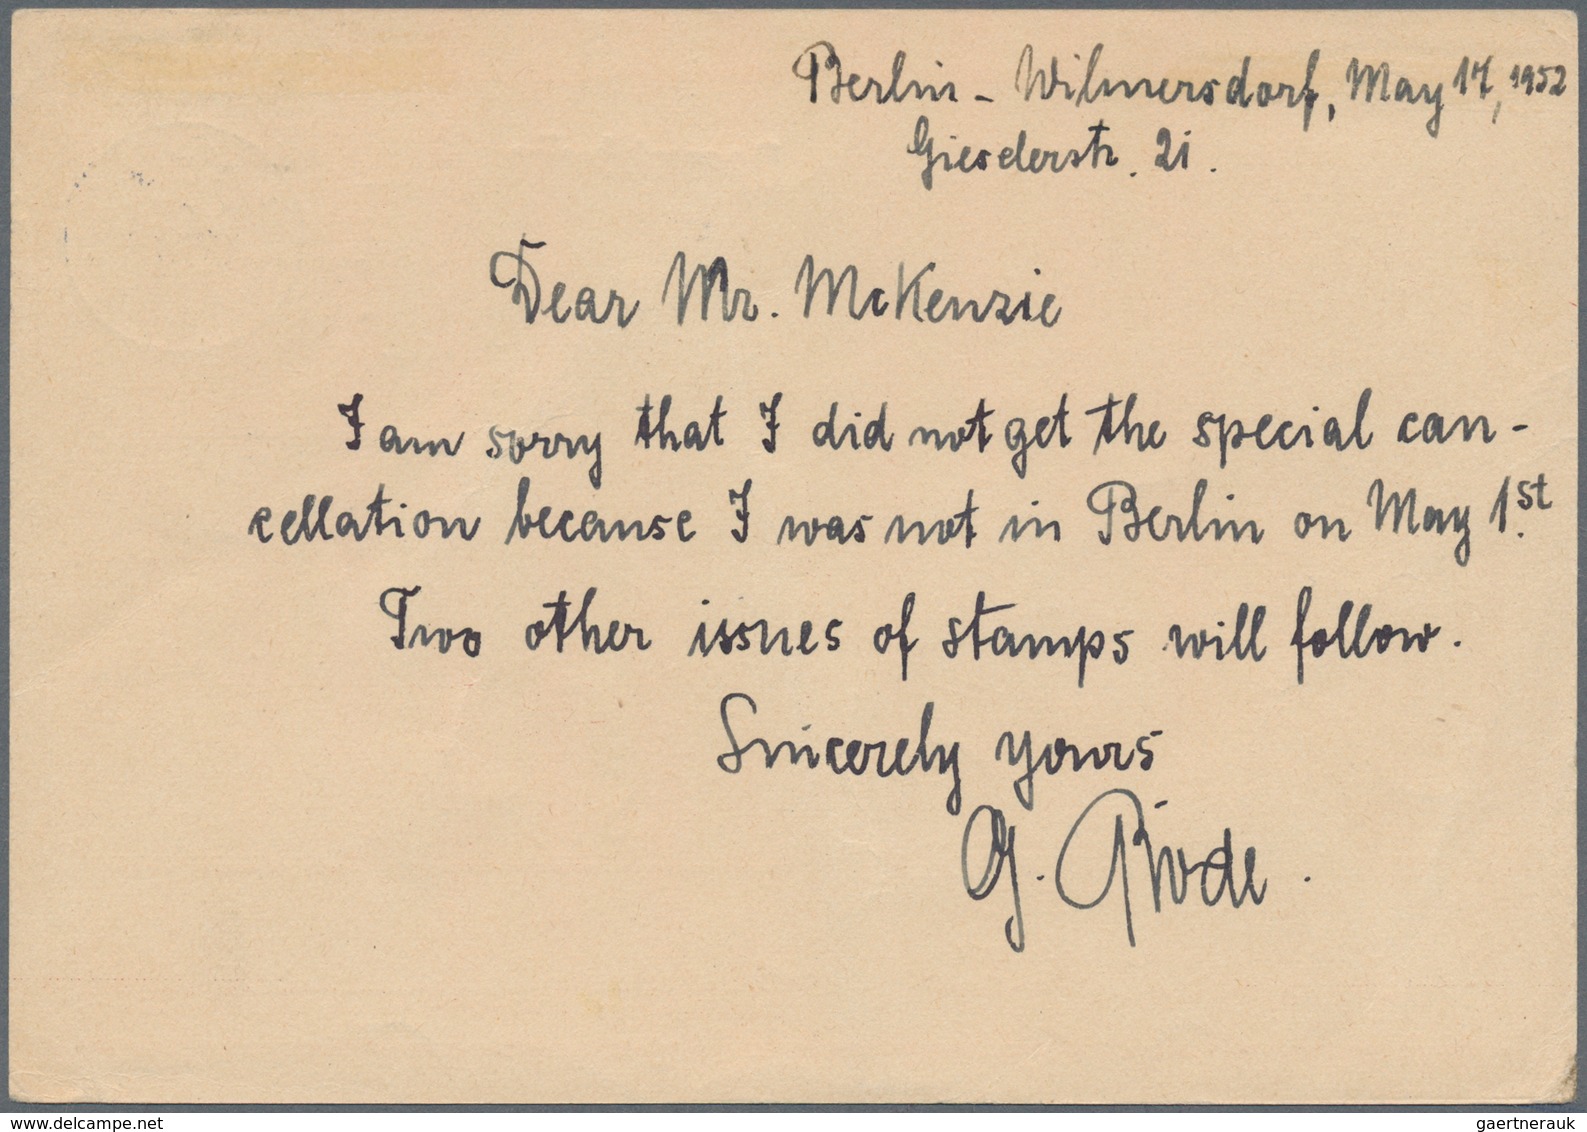 Berlin - Wilmersdorf, May 17, 1952
Gieselerstr. 21.
Dear Mr. McKenzie
I am sorry that I did not get the special can-
cellation because I was not in Berlin on May 1st.
Two other issues of stamps will follow.
Sincerely yours
G. Rode.
www.delcampe.net
gaertnerauk